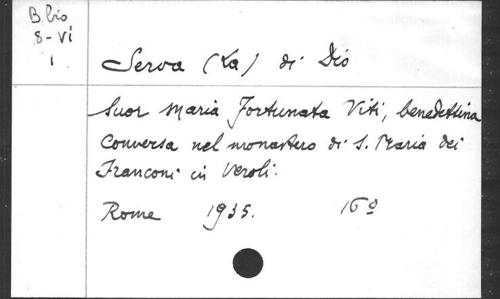 B bio
8-VI
1
Serva (La) di Dio
Suor Maria Fortunata Viti, benedettina
Conversa nel monastero di S. Maria dei
Franconi in Veroli.
Rome 1935. 16º